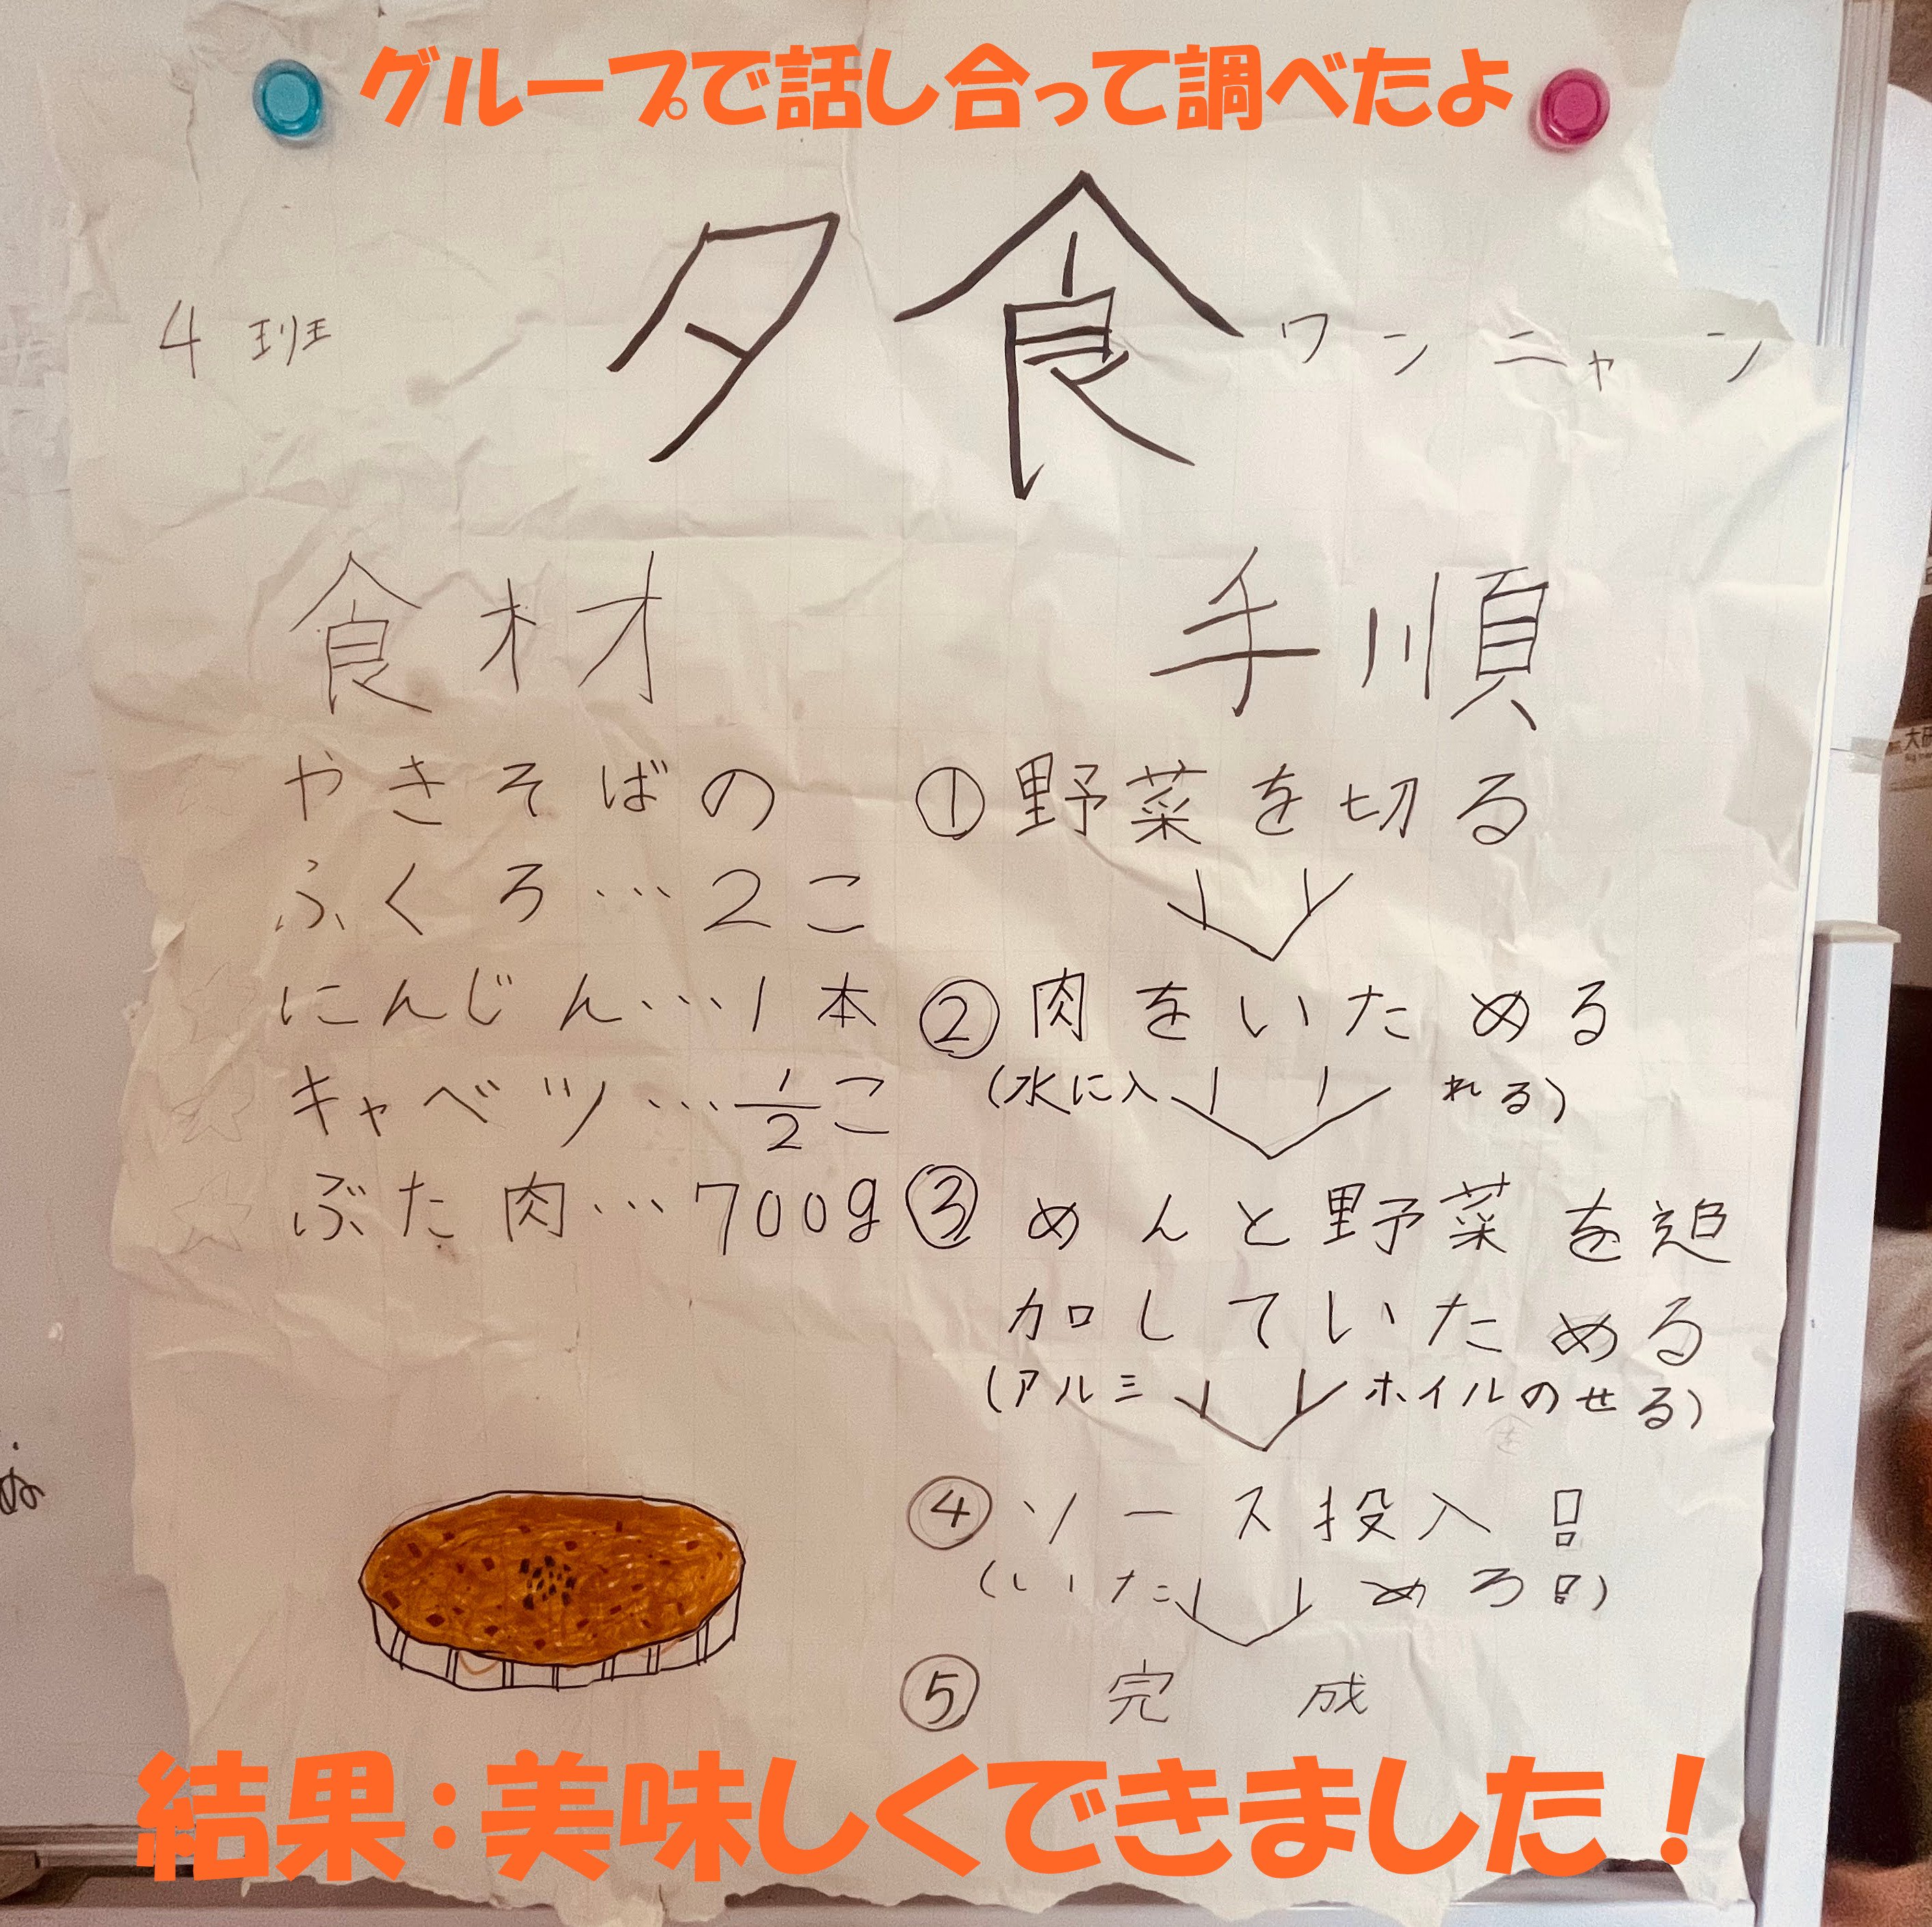 グループで話し合って調べたよ
夕食
4班
ワンニャン
食材
やきそばの
ふくろ…2こ
にんじん…1本
キャベツ…1/2こ
ぶた肉…700g
手順
①野菜を切る
②肉をいためる
(水に入れる)
③めんと野菜を追
加していためる
(アルミホイルのせる)
を
④ソース投入!
(いためろ!)
⑤完成
結果:美味しくできました!